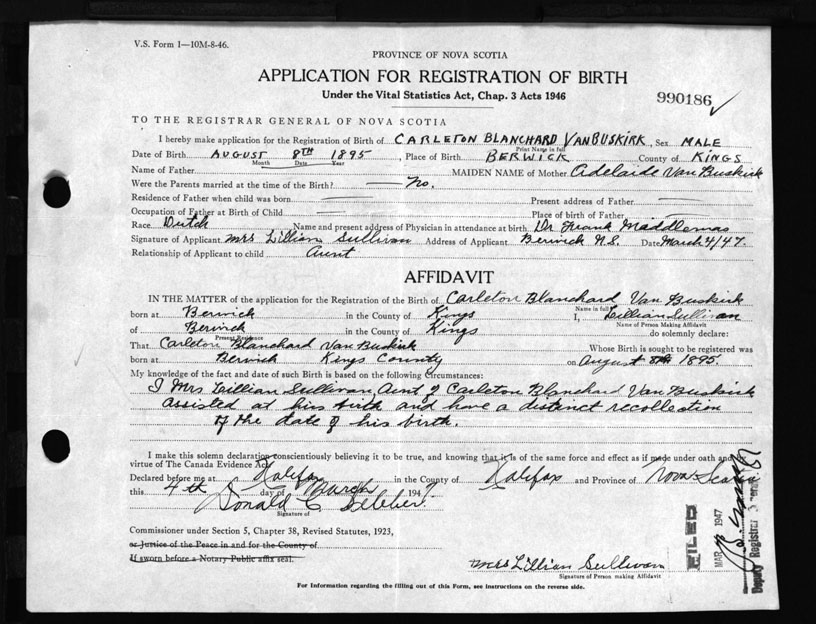 V.S. Form 1—10M-8-46.
PROVINCE OF NOVA SCOTIA
APPLICATION FOR REGISTRATION OF BIRTH
Under the Vital Statistics Act, Chap. 3 Acts 1946
990186
TO THE REGISTRAR GENERAL OF NOVA SCOTIA
I hereby make application for the Registration of Birth of CARLETON BLANCHARD VANBUSKIRK, Sex MALE
Print Name in full
Date of Birth AUGUST 8TH 1895, Place of Birth BERWICK County of KINGS
Month Date Year
Name of Father MAIDEN NAME of Mother Adelaide Van Buskirk
Were the Parents married at the time of the Birth? No.
Residence of Father when child was born Present address of Father
Occupation of Father at Birth of Child Place of birth of Father
Race Dutch Name and present address of Physician in attendance at birth Dr Frank Middlemas
Signature of Applicant Mrs Lillian Sullivan Address of Applicant Berwick N.S. Date March 4/47.
Relationship of Applicant to child Aunt
AFFIDAVIT
IN THE MATTER of the application for the Registration of the Birth of Carleton Blanchard Van Buskirk
Name in full
born at Berwick in the County of Kings I, Lillian Sullivan
Name of Person Making Affidavit
of Berwick in the County of Kings do solemnly declare:
Present Residence
That Carleton Blanchard Van Buskirk Whose Birth is sought to be registered was
born at Berwick Kings County on August 8th 1895.
My knowledge of the fact and date of such Birth is based on the following Circumstances:
I Mrs Lillian Sullivan, Aunt of Carleton Blanchard Van Buskirk
assisted at his birth and have a distinct recollection
of the date of his birth.
I make this solemn declaration conscientiously believing it to be true, and knowing that it is of the same force and effect as if made under oath and by
virtue of The Canada Evidence Act.
Declared before me at Halifax in the County of Halifax and Province of Nova Scotia
this 4th day of March 1947
Donald C
Signature of
Commissioner under Section 5, Chapter 38, Revised Statutes, 1923,
or Justice of the Peace in and for the County of
If sworn before a Notary Public affix seal.
Mrs Lillian Sullivan
Signature of Person making Affidavit
For Information regarding the filling out of this Form, see instructions on the reverse side.
FILED
MAR 1947
Deputy Registrar